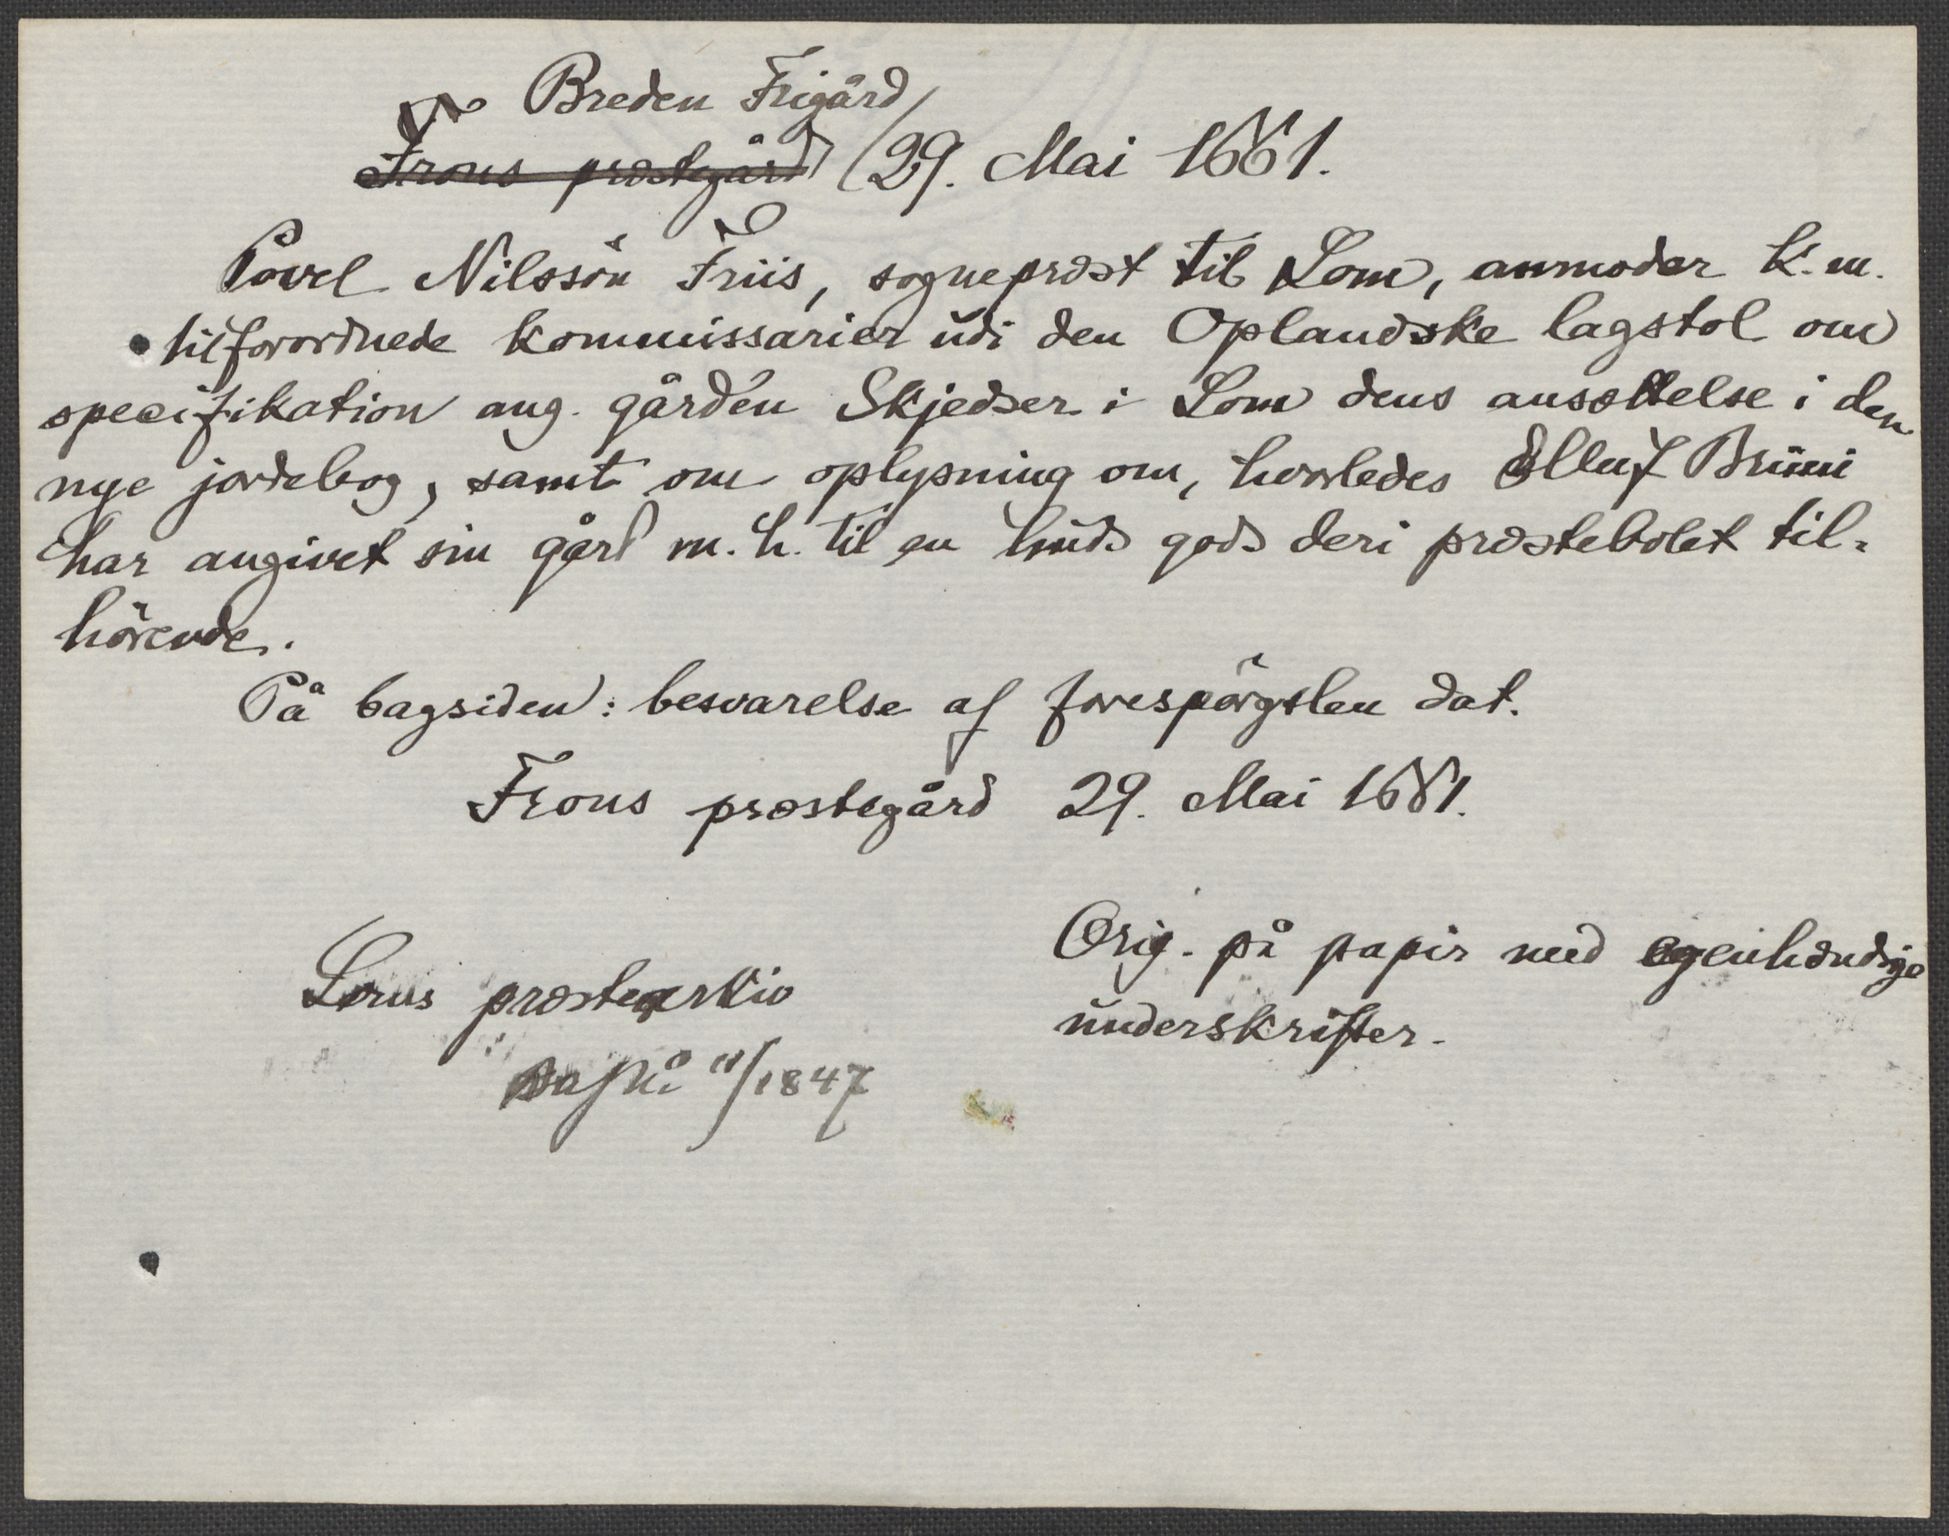 Breden Frigård
Frons præstegård 29. Mai 1661.
Povel Nilssön Friis, sognepræst til Lom, anmoder k. m.
tilforordnede kommissarier udi den Oplandske lagstol om
specifikation ang. gården Skjedser i Lom dens ansættelse i den
nye jordebog, samt om oplysning om, hvorledes Olluf Bruni
har angivet sin gård m. h. til en huds gods deri præstebolet til-
hörende.
På bagsiden: besvarelse af forespörgslen dat.
Frons præstegård 29. Mai 1661.
Orig. på papir med egenhændige
Loms præstearkiv
underskrifter.
11/1847